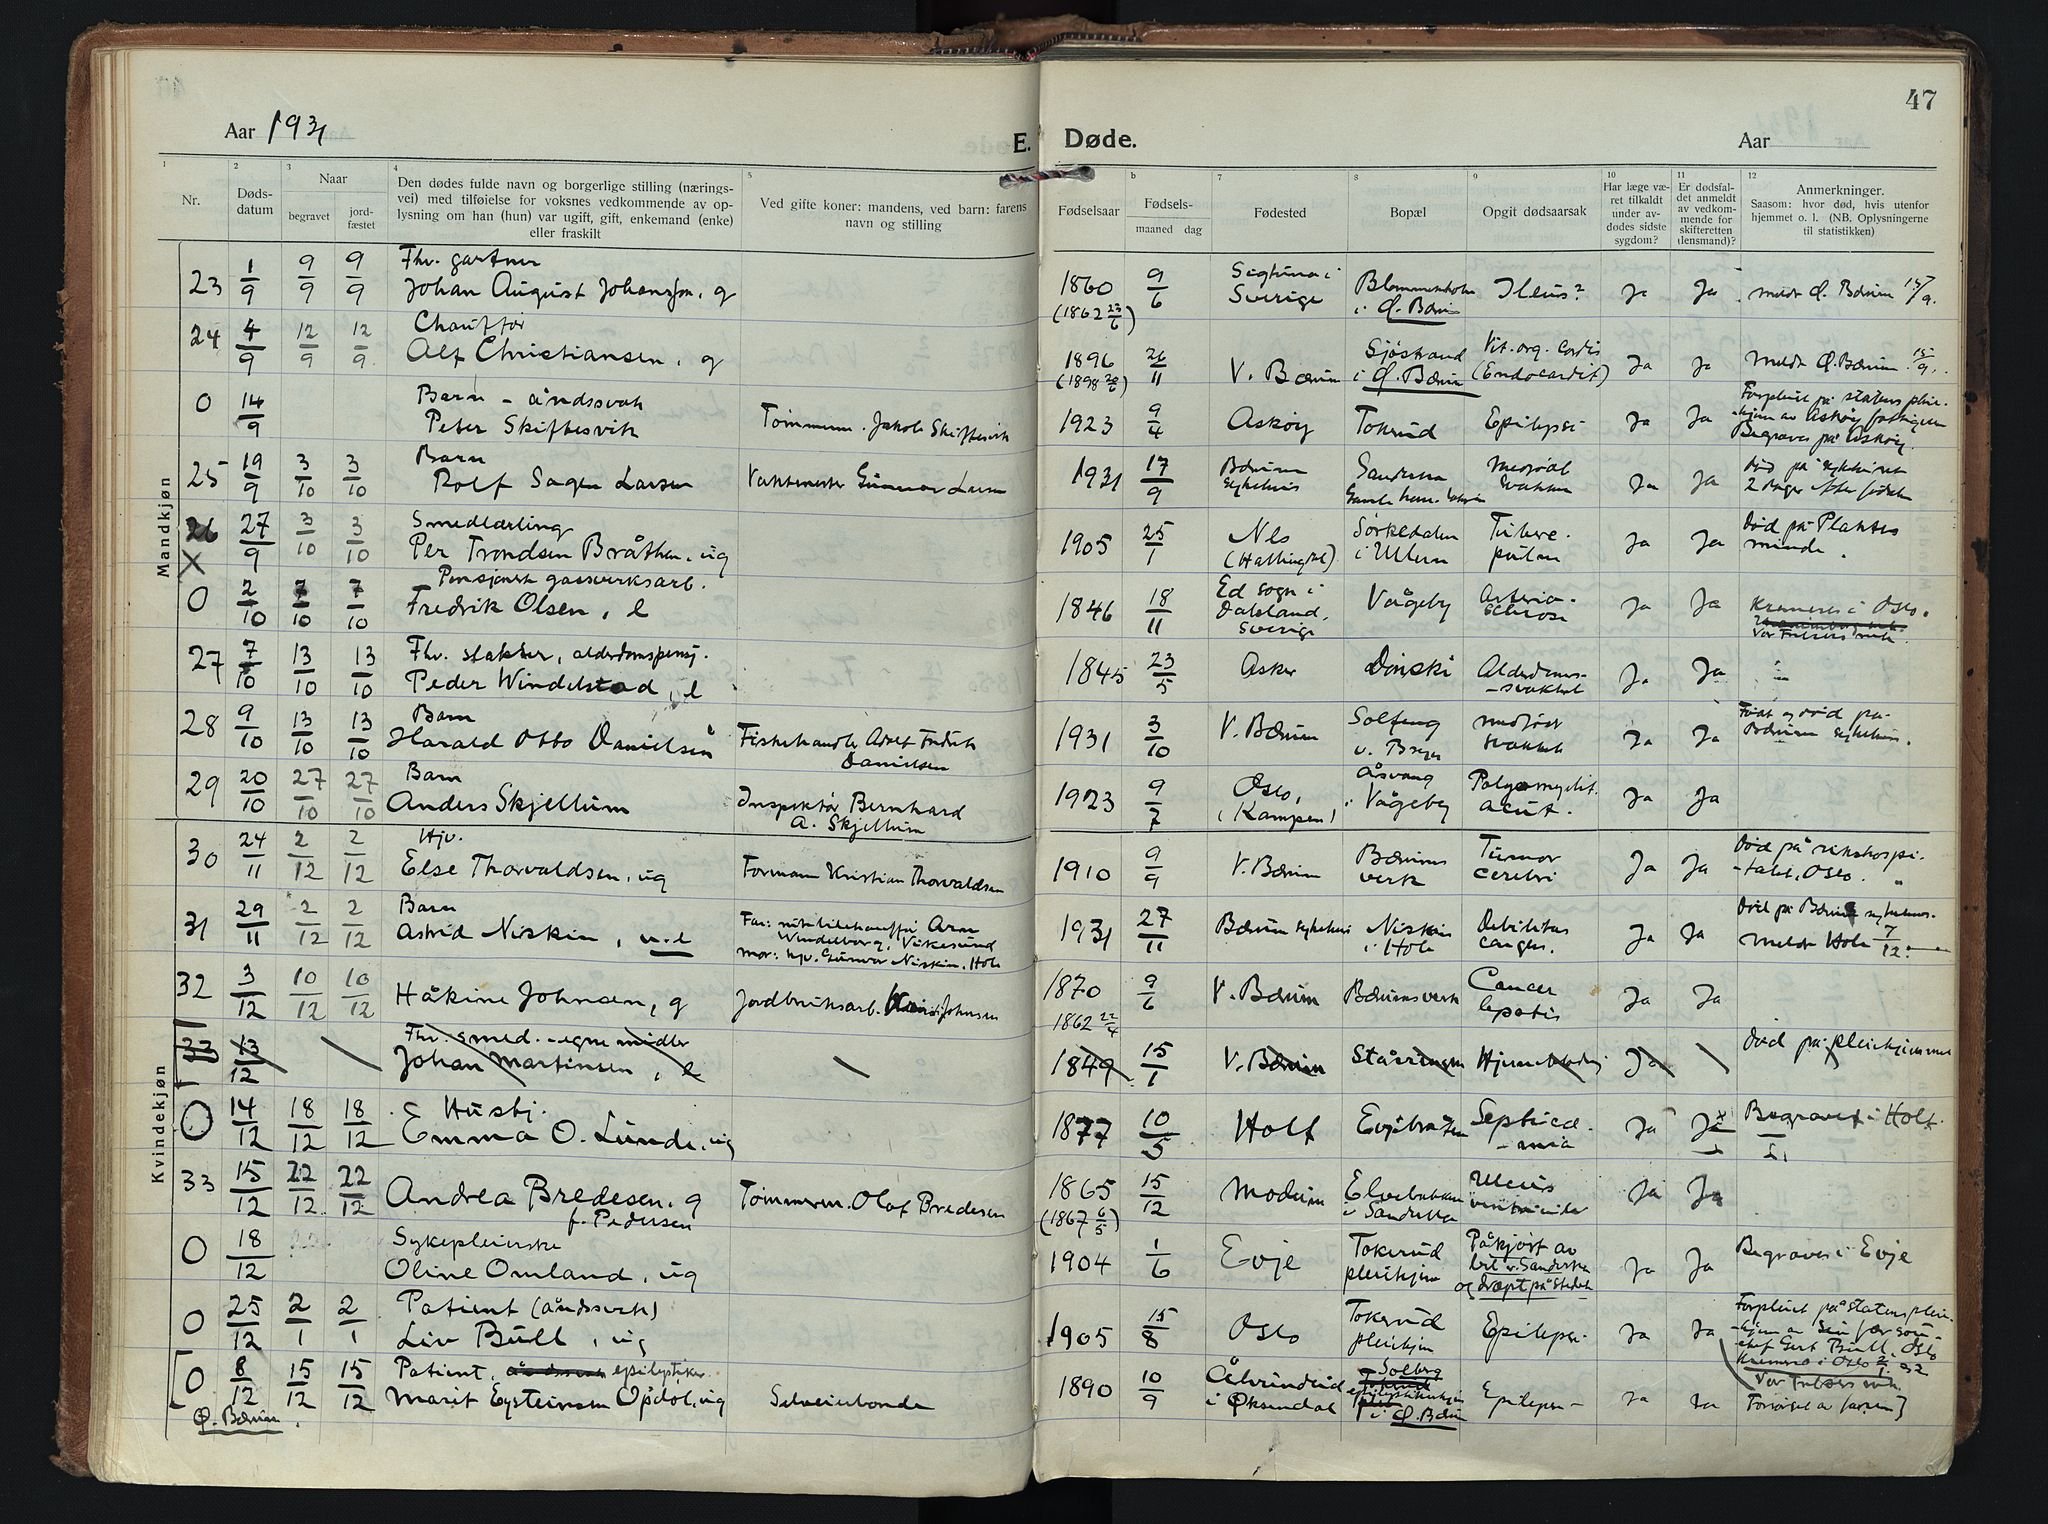 47
Aar 1931
E. Døde.
Aar
1 2 3 4 5 b 7 8 9 10 11 12
Nr.
Dødsdatum
Naar
begravet
jordfæstet
Den dødes fulde navn og borgerlige stilling (næringsvei) med tilføielse for voksnes vedkommende av oplysning om han (hun) var ugift, gift, enkemand (enke) eller fraskilt
Ved gifte koner: mandens, ved barn: farens navn og stilling
Fødselsaar
Fødselsmaaned dag
Fødested
Bopæl
Opgit dødsaarsak
Har læge været tilkaldt under avdødes sidste sygdom?
Er dødsfaldet anmeldt av vedkommende for skifteretten (lensmand)?
Anmerkninger.
Saasom: hvor død, hvis utenfor hjemmet o. l. (NB. Oplysningerne til statistikken)
Mandkjøn
23 1/9 9/9 9/9 Fhv. gartner
Johan August Johansson, g
1860 9/6 (1862 23/6) Sigtuna i Sverige Blommenholm i Ø. Bærum Ileus? Ja Ja meldt Ø. Bærum 15/9.
24 4/9 12/9 12/9 Chauffør
Alf Christiansen, g
1896 26/11 V. Bærum Sjøstrand i Ø. Bærum Vit. org. cordis (Endocardit) Ja Ja Meldt Ø. Bærum 15/9.
0 14/9 Barn - åndssvak
Peter Skiftesvik Tømmerm. Jakob Skiftesvik
1923 9/4 Askøy Tokerud Epilepsi Ja Ja Forpleiet på statens pleiehjem av Askøy
Begraves på Askøy.
25 19/9 3/10 3/10 Barn
Rolf Sagen Larsen Vaktmester Gunnar Larsen
1931 17/9 Bærum sykehus Sandvika medfødt svakhet Ja Ja Død på sykehuset 2 dager efter fødsel
26 X 27/9 3/10 3/10 Smedlærling
Per Trondsen Bråthen, ug
1905 25/1 Nes (Hallingdal) Sørkedalen i Ullern Tuberc. pulm Ja Ja Død på Plahtes minde.
0 2/10 7/10 7/10 Pensjonert gassverksarb.
Fredrik Olsen, e
1846 18/11 Ed sogn i Dalsland, Sverige Vøgeby Arteriosclerose Ja Ja Kremeres i Oslo.
27 7/10 13/10 13/10 Fhv. slakter, alderdomspensj.
Peder Windelstad, e
1845 23/5 Asker Dønski Alderdomssvakhet Ja Ja
28 9/10 13/10 13/10 Barn
Harald Otto Danielsen Fiskehandler Adolf Fredrik Danielsen
1931 3/10 V. Bærum Solfeng medfødt svakhet Ja Ja Født og død på Bærum sykehus.
29 20/10 27/10 27/10 Barn
Anders Skjellum Inspektør Bernhard A. Skjellum
1923 9/7 Oslo, (Kampen) Åsvang Vøgeby Polyomyelit. acut. Ja Ja
Kvindekjøn
30 24/11 2/12 2/12 Hjv.
Else Thorvaldsen, ug Formann Kristian Thorvaldsen
1910 9/9 V. Bærum Bærums verk Tumor cerebri Ja Ja Død på rikshospitalet, Oslo.
31 29/11 2/12 2/12 Barn
Astrid Niskin, u.e Far: rutebilchauffør Arne Windelborg, Vikersund
mor: hjv. Gunvor Niskin, Hole
1931 27/11 Bærum sykehus Niskin i Hole Debilitas congen. Ja Ja Død på Bærum sykehus.
Meldt Hole 7/12.
32 3/12 10/12 10/12 Håkine Johnsen, g Jordbruksarb. Johnsen
1870 9/6 1862 22/4 V. Bærum Bærumsverk Cancer hepatis Ja Ja
33 13/12 Fhv. smed - egne midler
Johan Martinsen, e
1849 15/1 V. Bærum Hjerneblødning Ja død på pleiehjemmet
0 14/12 18/12 18/12 Husbj.
Emma O. Lunde, ug
1877 10/5 Holt Septicæmia Ja Ja Begravet i Holt
33 15/12 22/12 22/12 Andrea Bredesen, g
f. Pedersen Tømmerm. Olaf Bredesen
1865 15/12 (1867 6/5) Modum Elvebakken i Sandvika Ulcus ventriculi Ja Ja
0 18/12 Sykepleierske
Oline Omland, ug
1904 1/6 Evje Tokerud pleiehjem Påkjørt av bil v. Sandvika og dræpt på stedet Ja Ja Begraves i Evje
0 25/12 2/1 2/1 Patient (åndssvak)
Liv Bull, ug
1905 15/8 Oslo Tokerud pleiehjem Epilepsi Ja Ja Forpleiet på statens pleiehjem av sin far
Gert Bull, Oslo
Kremeres i Oslo 2/1 32
0 8/12 15/12 15/12 Patient, epileptiker
Marit Eysteinsen Opdøl, ug Selveierbonde
1890 10/9 Ålvundeid i Øksendal Solberg i Ø. Bærum Epilepsi Ja Ja Forsørget av faren]
Ø. Bærum.